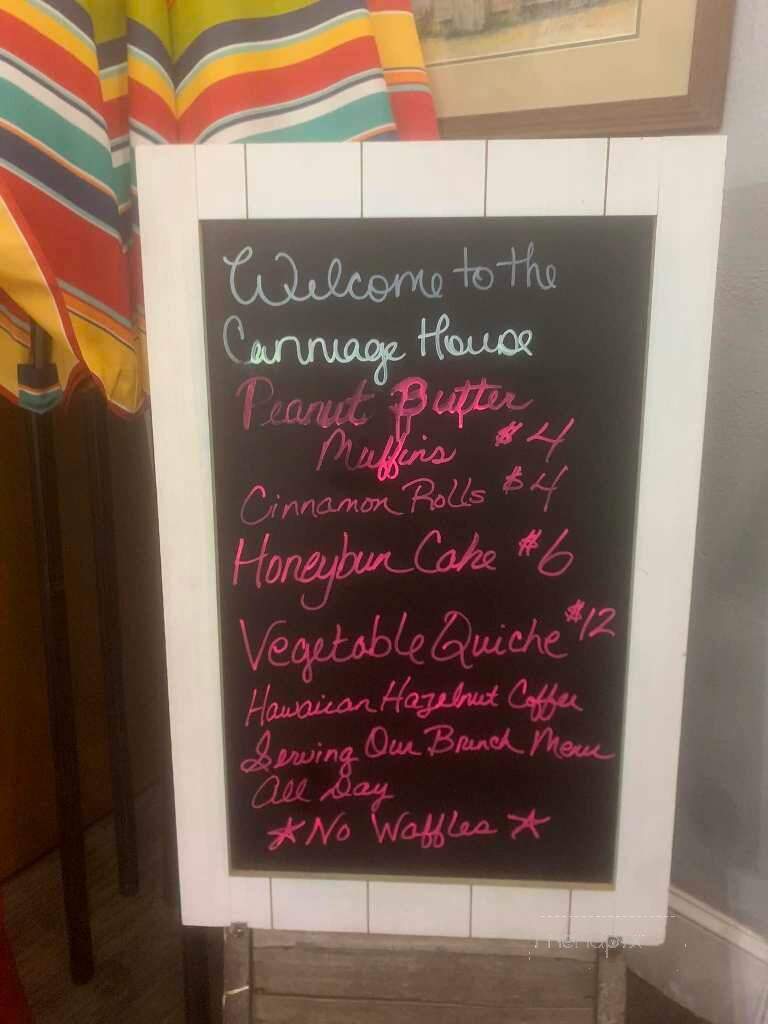 Welcome to the
Carriage House
Peanut Butter
Muffins $4
Cinnamon Rolls $4
Honeybun Cake $6
Vegetable Quiche $12
Hawaiian Hazelnut Coffee
Serving Our Brunch Menu
All Day
☆ No Waffles ☆
menupix